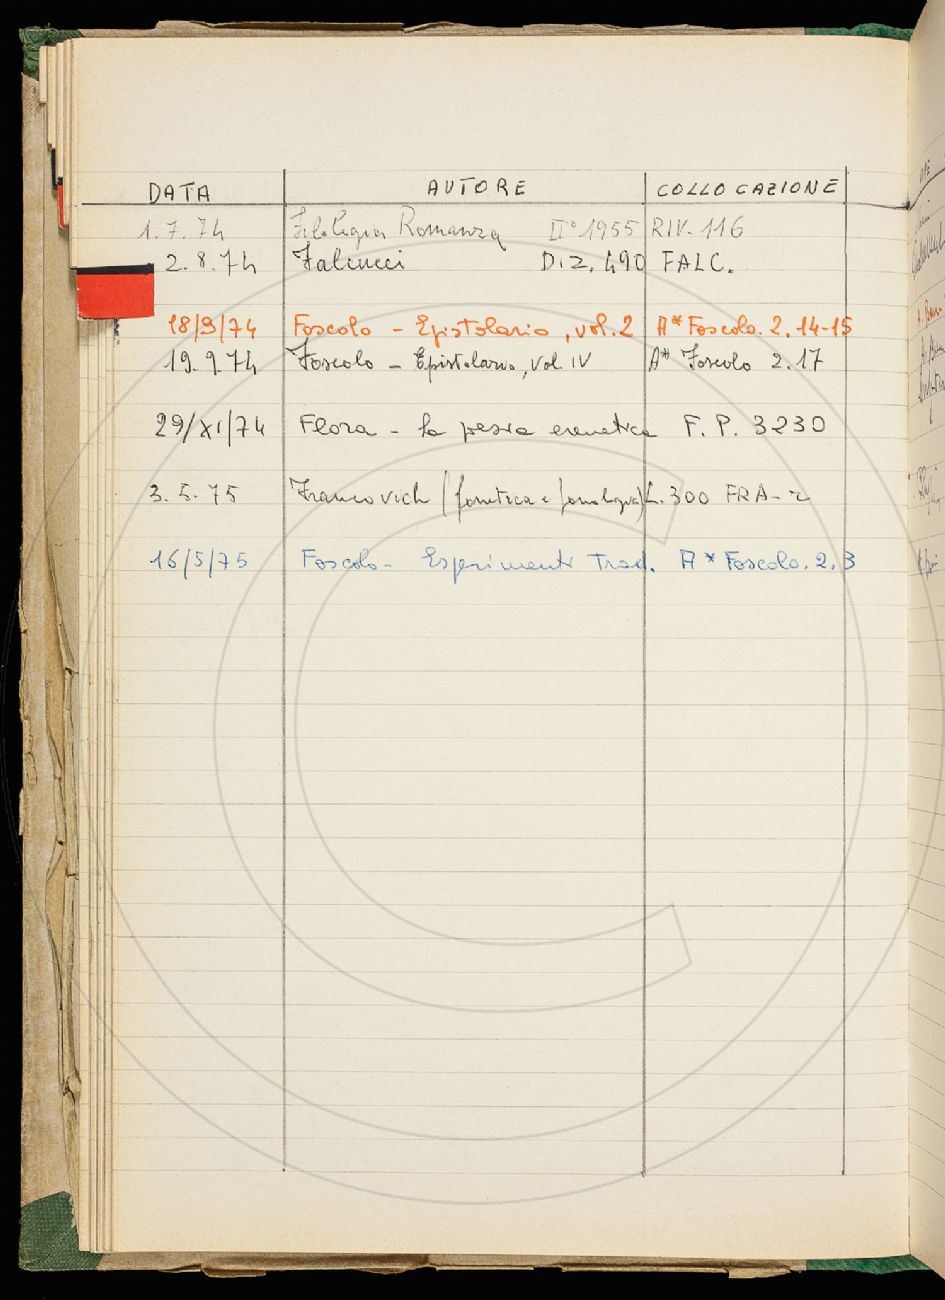 DATA AUTORE COLLOCAZIONE
1.7.74 Filologia Romanza II° 1955 RIV. 116
2.8.74 Falcucci DIZ. 490 FALC.
18/9/74 Foscolo - Epistolario, vol. 2 A* Foscolo. 2. 14-15
19.9.74 Foscolo - Epistolario, vol. IV A* Foscolo 2.17
29/XI/74 Flora - la poesia ermetica F. P. 3230
3.5.75 Francovich (fonetica e fonologia) L. 300 FRA - 2
16/5/75 Foscolo - Esperimenti Trad. A* Foscolo. 2. 3